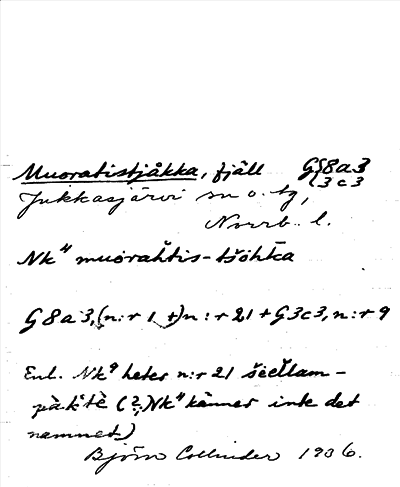 Muoratistjåkka, fjäll G{8a3
{3c3
Jukkasjärvi sn o. tg,
Norrb. l.
Nk⁴ muorahtis-tšohkka
G8a3, (n:r 1 +) n:r 21 + G3c3, n:r 9
Enl. Nk⁹ heter n:r 21
(?, Nk⁴ känner inte det
namnet)
Björn Collinder 1936.